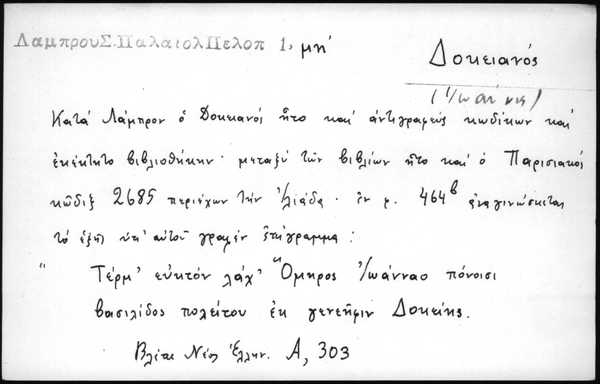 ΛαμπρουΣ.ΠαλαιολΠελοπ 1, μη'
Δοκειανός
(Ἰωάννης)
Κατά Λάμπρον ὁ Δοκειανός ἦτο καί ἀντιγραφεύς κωδίκων καί
ἐκέκτητο βιβλιοθήκην· μεταξύ τῶν βιβλίων ἦτο καί ὁ Παρισιακός
κῶδιξ 2685 περιέχων τήν Ἰλιάδα. ἐν φ. 464β ἀναγινώσκεται
τό ἑξῆς ὑπ' αὐτοῦ γραφέν ἐπίγραμμα:
" Τέρμ' εὐκτόν λάχ' Ὅμηρος Ἰωάνναο πόνοισι
βασιλίδος πολείτου ἐκ γενεῆφιν Δοκείης.
Βλέπε Νέος Ἑλλην. Α, 303